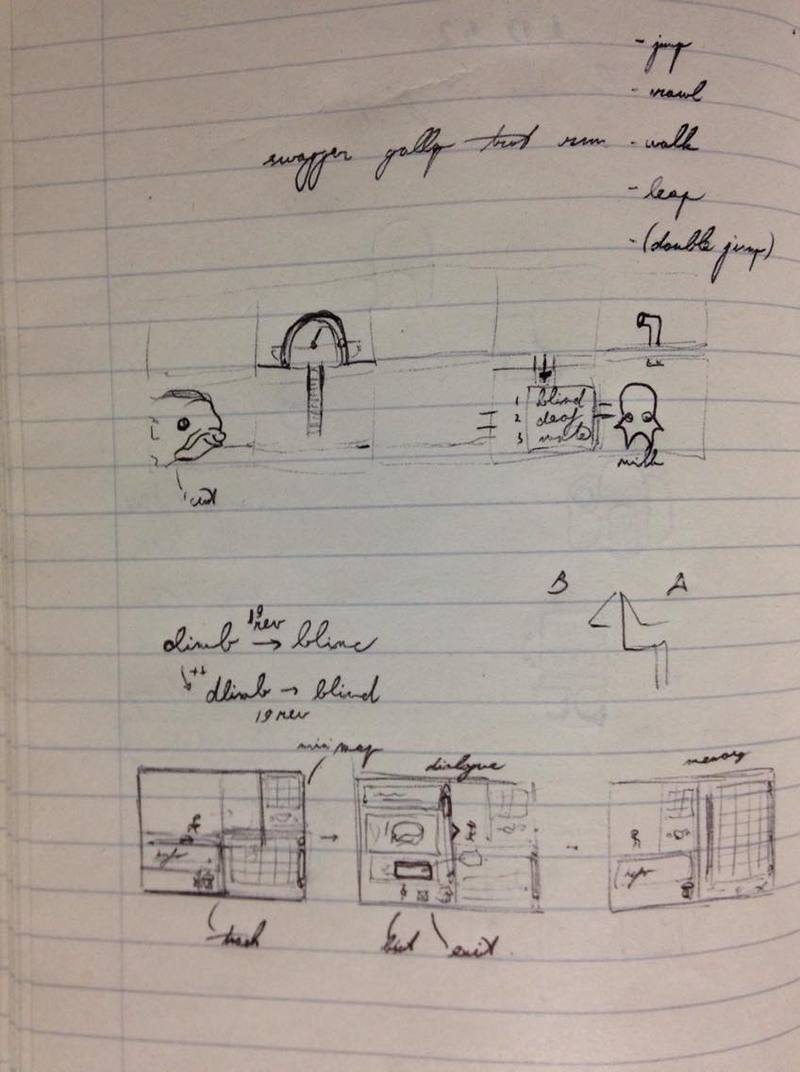 - jump
- crawl
swagger gallop trot run - walk
- leap
- (double jump)
1 blind
2 deaf
3 mute
milk
B A
climb → blimc
++ dlimb → blind
19 rev
mini map
dialogue
memory
trash
but exit